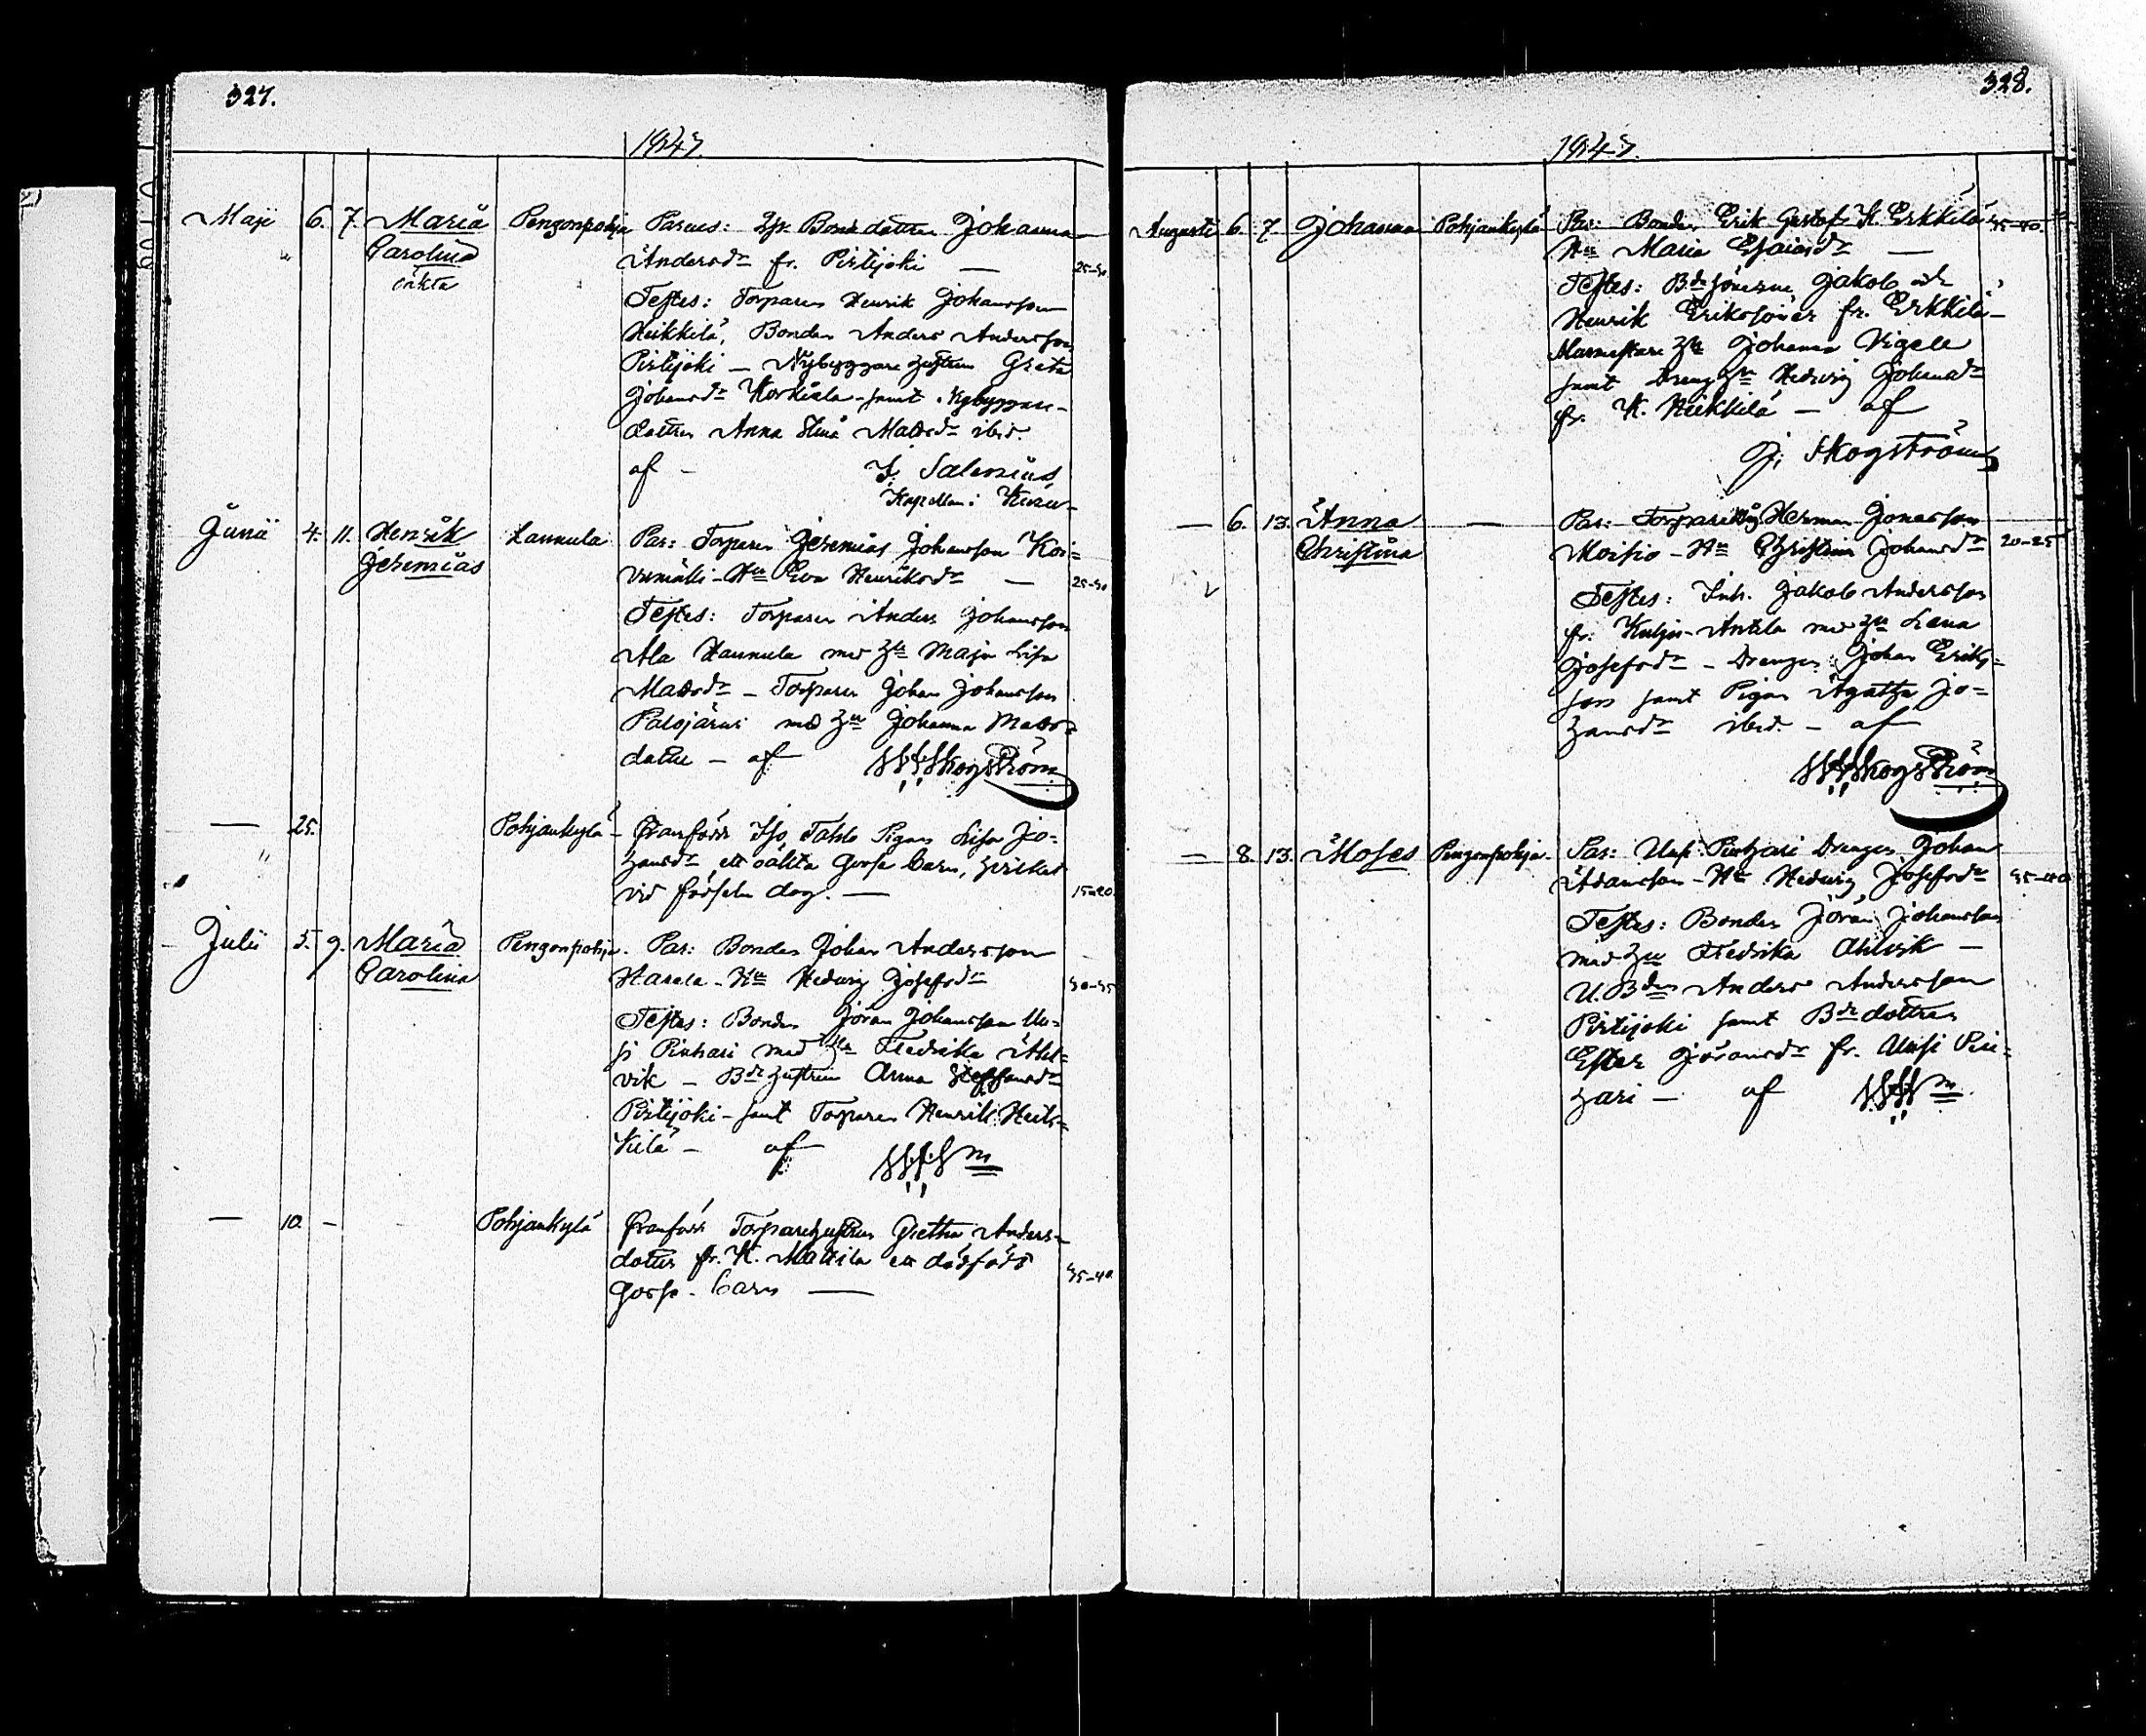 327.
1847.
Maji 6. 7. Maria Pengonpohja Parens: Bondedottren Johanna
Carolina Andersdr fr. Pirtijoki — 25-30
oäkta
Testes: Torparen Henrik Johansson
Heikkilä, Bonden Anders Andersson
Pirtijoki — Nybyggare hustrun Greta
Johansdr Korkiala samt Nybyggare-
dottren Anna Stina Matsdr ibid.
af — Salenius
Kapellan i
Junii 4. 11. Henrik Hannula Par: Torparen Jeremias Johansson Koi-
Jeremias vumäki - Hu Eva Henriksdr — 25-30
Testes: Torparen Anders Johansson
Ala Hannula med hu Maja Lisa
Matsdr — Torparen Johan Johansson
Palojärvi med hu Johanna Mats-
dotter — af Skogström
— 25. Pohjankylä — Framfödde Tahlo Pigan Lisa Jo-
hansdr, ett oäkta gosse barn, hvilket
vid födseln dog. — 15-20
Julii 5. 9. Maria Pengonpohja. Par: Bonden Johan Andersson
Carolina Harala - Hu Hedvig Josefsdr 30-35
Testes: Bonden Jöran Johansson Uu-
si Pinhari med hu Fredrika Ahl-
vik — Bde hustrun Anna Staffansdr
Pirtijoki - samt Torparen Henrik Heik-
kilä — af
— 10. — Pohjankylä Framfödde Torparehustrun Gretha Anders-
dotter fr. K. Mattila ett dödfödt
gosse-barn — 35-40
328.
1847.
Augusti 6. 7. Johanna Pohjankylä Par: Bonden Erik Gustafs. K. Erkkilä 35-40.
Hu Maria Esaiasdr —
Testes: Bdesönerne Jakob och
Henrik Erikssöner fr. Erkkilä —
hu Johanna Vigell
samt Drenghu Hedvig Johansdr
fr. K. Heikkilä — af
J. Skogström
— 6. 13. Anna — Par: Herman Jonasson
Christina Moisio - Hu Christina Johansdr 20-25
Testes: Inh. Jakob Andersson
fr. Antila med hu Lena
Josefsdr — Drengen Johan Eriks-
son samt Pigan Agatha Jo-
hansdr ibid. — af
Skogström
— 8. 13. Moses Pengonpohja. Par: Uusi Pinhari Drengen Johan
Adamsson - Hu Hedvig Josefsdr 35-40
Testes: Bonden Jöran Johansson
med hu Fredrika Ahlvik —
U. Bden Anders Andersson
Pirtijoki samt Bdedottren
Ester Jöransdr fr. Uusi Pin-
hari — af